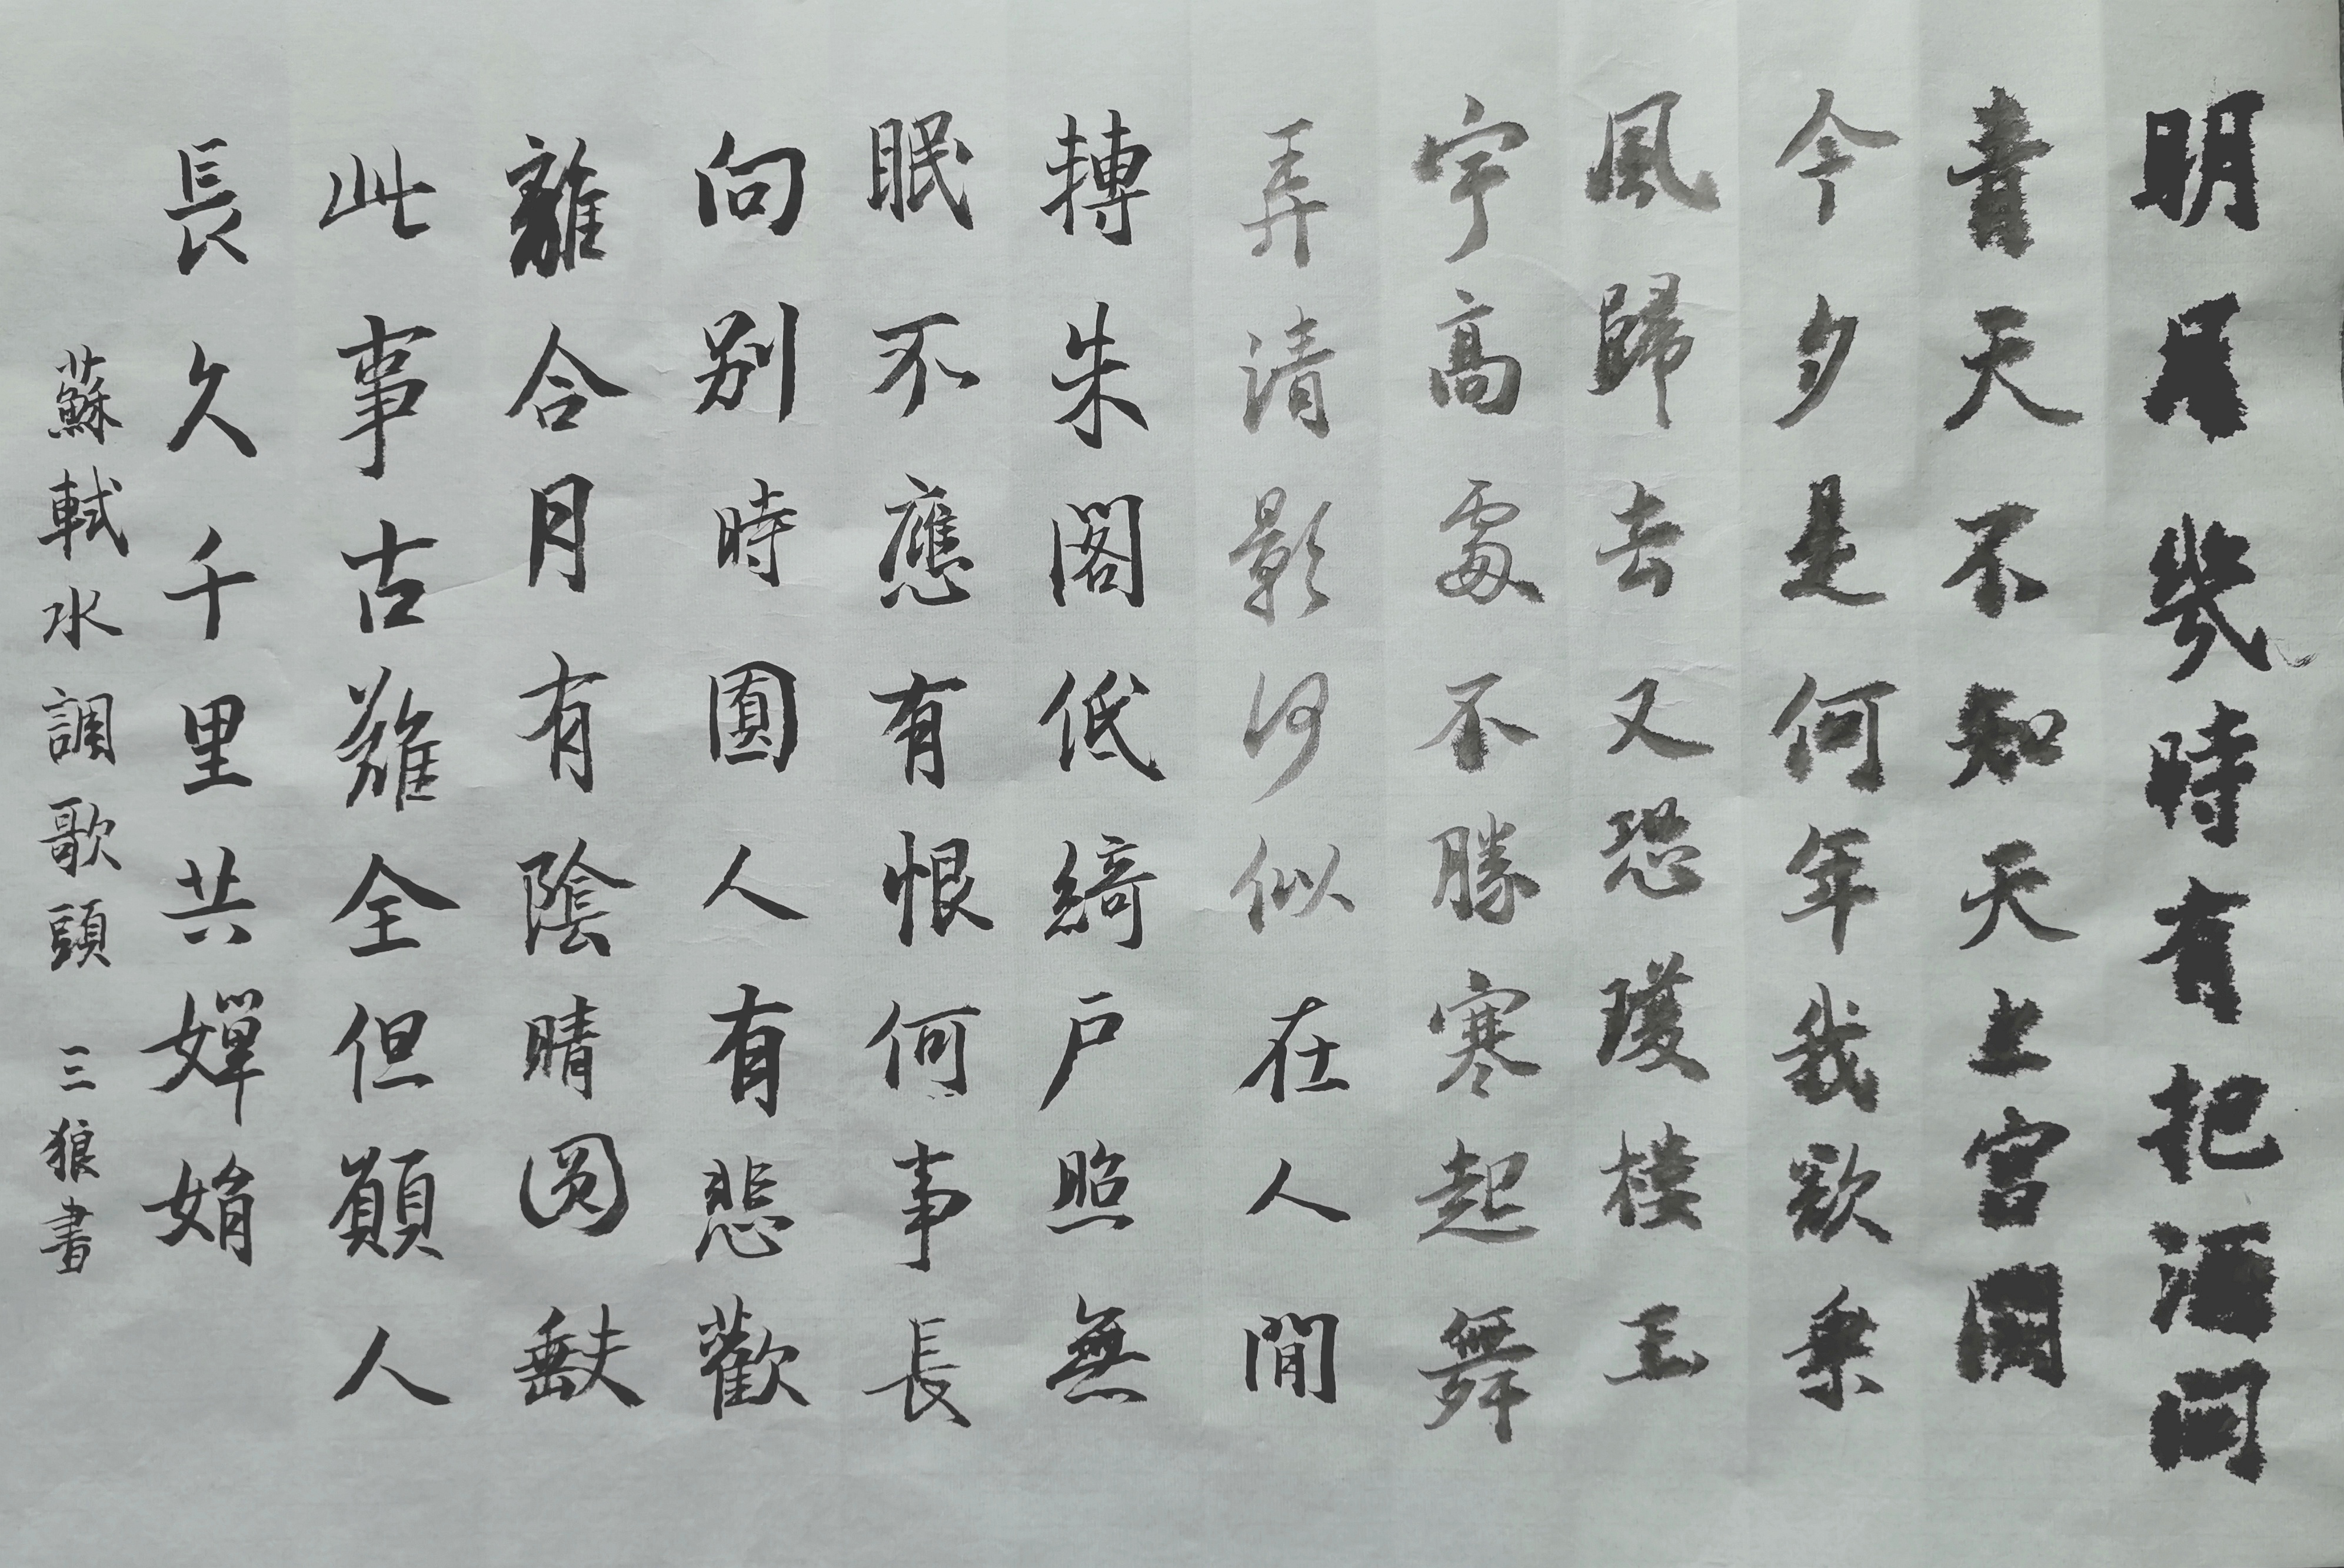 明月幾時有把酒問
青天不知天上宮闕
今夕是何年我欲乘
風歸去又恐瓊樓玉
宇高處不勝寒起舞
弄清影何似在人間
轉朱閣低綺戶照無
眠不應有恨何事長
向別時圓人有悲歡
離合月有陰晴圆缺
此事古難全但願人
長久千里共嬋娟
蘇軾水調歌頭 三狼書